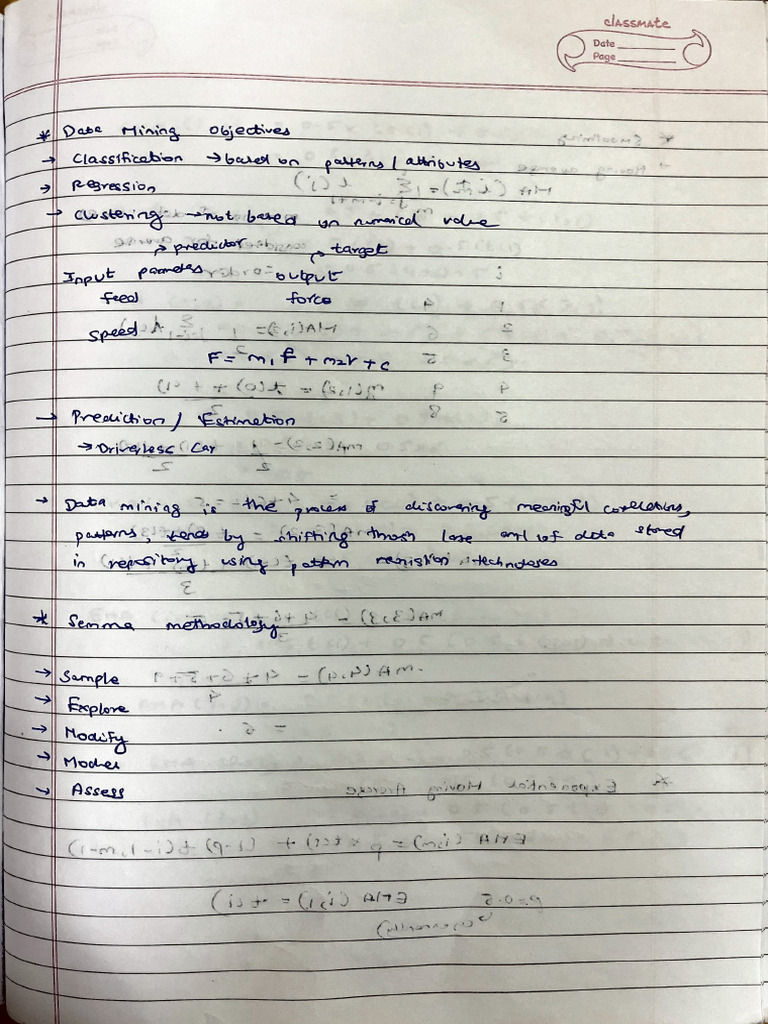 classmate
Date
Page
* Data Mining Objectives
→ Classification → based on patterns / attributes
→ Regression
→ Clustering → not based on numerical value
↗ predictor ↗ target
Input parameter output
feed force
speed
F = m1 f + m2v + c
→ Prediction / Estimation
→ Driverless Car
→ Data mining is the process of discovering meaningful correlations,
patterns, by shifting of data stored
in repository using pattern
* Semma methodology
→ Sample
→ Explore
→ Modify
→ Model
→ Assess